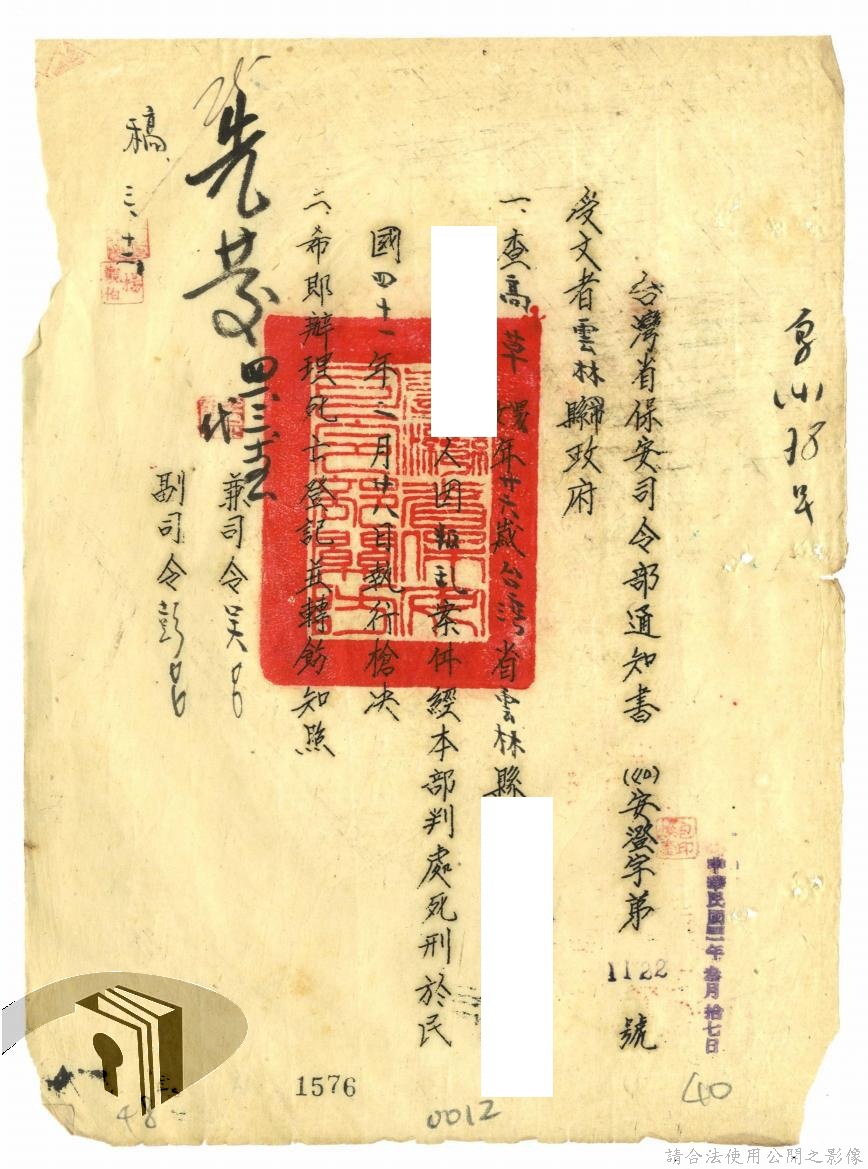 台灣省保安司令部通知書 (40)安澄字第1122號
中華民國四一年叁月拾七日
受文者雲林縣政府
一、查高草
年廿六歲台灣省雲林縣
人因叛乱案件經本部判處死刑於民
國四十一年二月廿八日執行槍决
二、希即辦理死亡登記並轉飭知照
兼司令吳
副司令彭
先發
代
稿
三、十二
1576
0012
40
48
請合法使用公開之影像